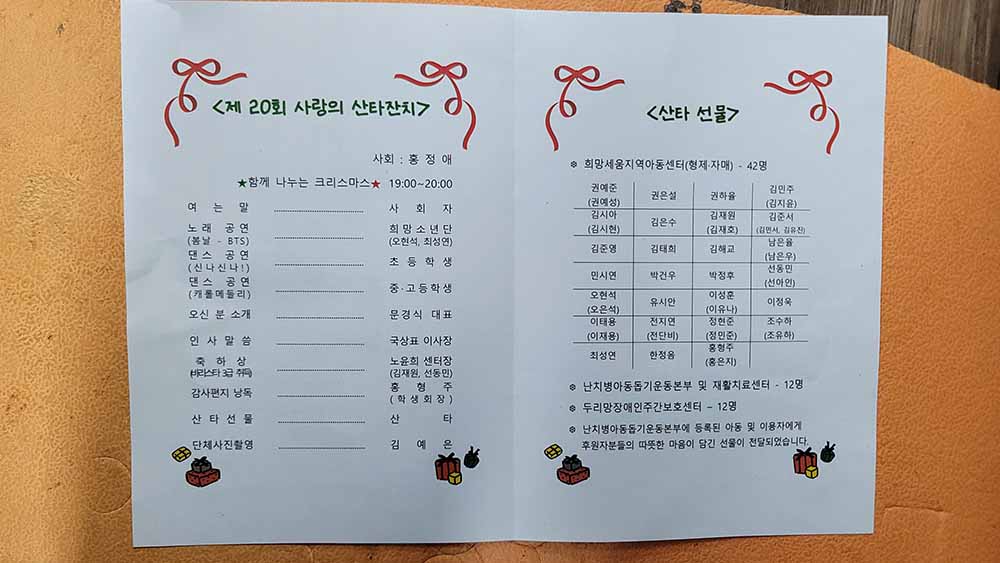 <제 20회 사랑의 산타잔치>
사회 : 홍 정 애
★함께 나누는 크리스마스★ 19:00~20:00
여 는 말 ........................ 사 회 자
노 래 공 연 ........................ 희 망 소 년 단
(봄날 - BTS) (오현석, 최성연)
댄 스 공 연 ........................ 초 등 학 생
(신나신나!)
댄 스 공 연 ........................ 중·고등학생
(캐롤메들리)
오신 분 소개 ........................ 문경식 대표
인 사 말 씀 ........................ 국상표 이사장
축 하 상 ........................ 노윤희 센터장
(바리스타 3급 취득) (김재원, 선동민)
감사편지 낭독 ........................ 홍 형 주
(학생회장)
산 타 선 물 ........................ 산 타
단체사진촬영 ........................ 김 예 은
<산타 선물>
❆ 희망세움지역아동센터(형제·자매) - 42명
권예준 (권예성) 권은설 권하율 김민주 (김지윤)
김시아 (김시현) 김은수 김재원 (김재호) 김준서 (김민서, 김유진)
김준영 김태희 김해교 남은율 (남은우)
민시연 박건우 박정후 선동민 (선아인)
오현석 (오은석) 유시안 이성훈 (이유나) 이정욱
이태용 (이재용) 전지연 (전단비) 정현준 (정민준) 조수하 (조유하)
최성연 한정음 홍형주 (홍은지)
❆ 난치병아동돕기운동본부 및 재활치료센터 - 12명
❆ 두리망장애인주간보호센터 – 12명
❆ 난치병아동돕기운동본부에 등록된 아동 및 이용자에게
후원자분들의 따뜻한 마음이 담긴 선물이 전달되었습니다.